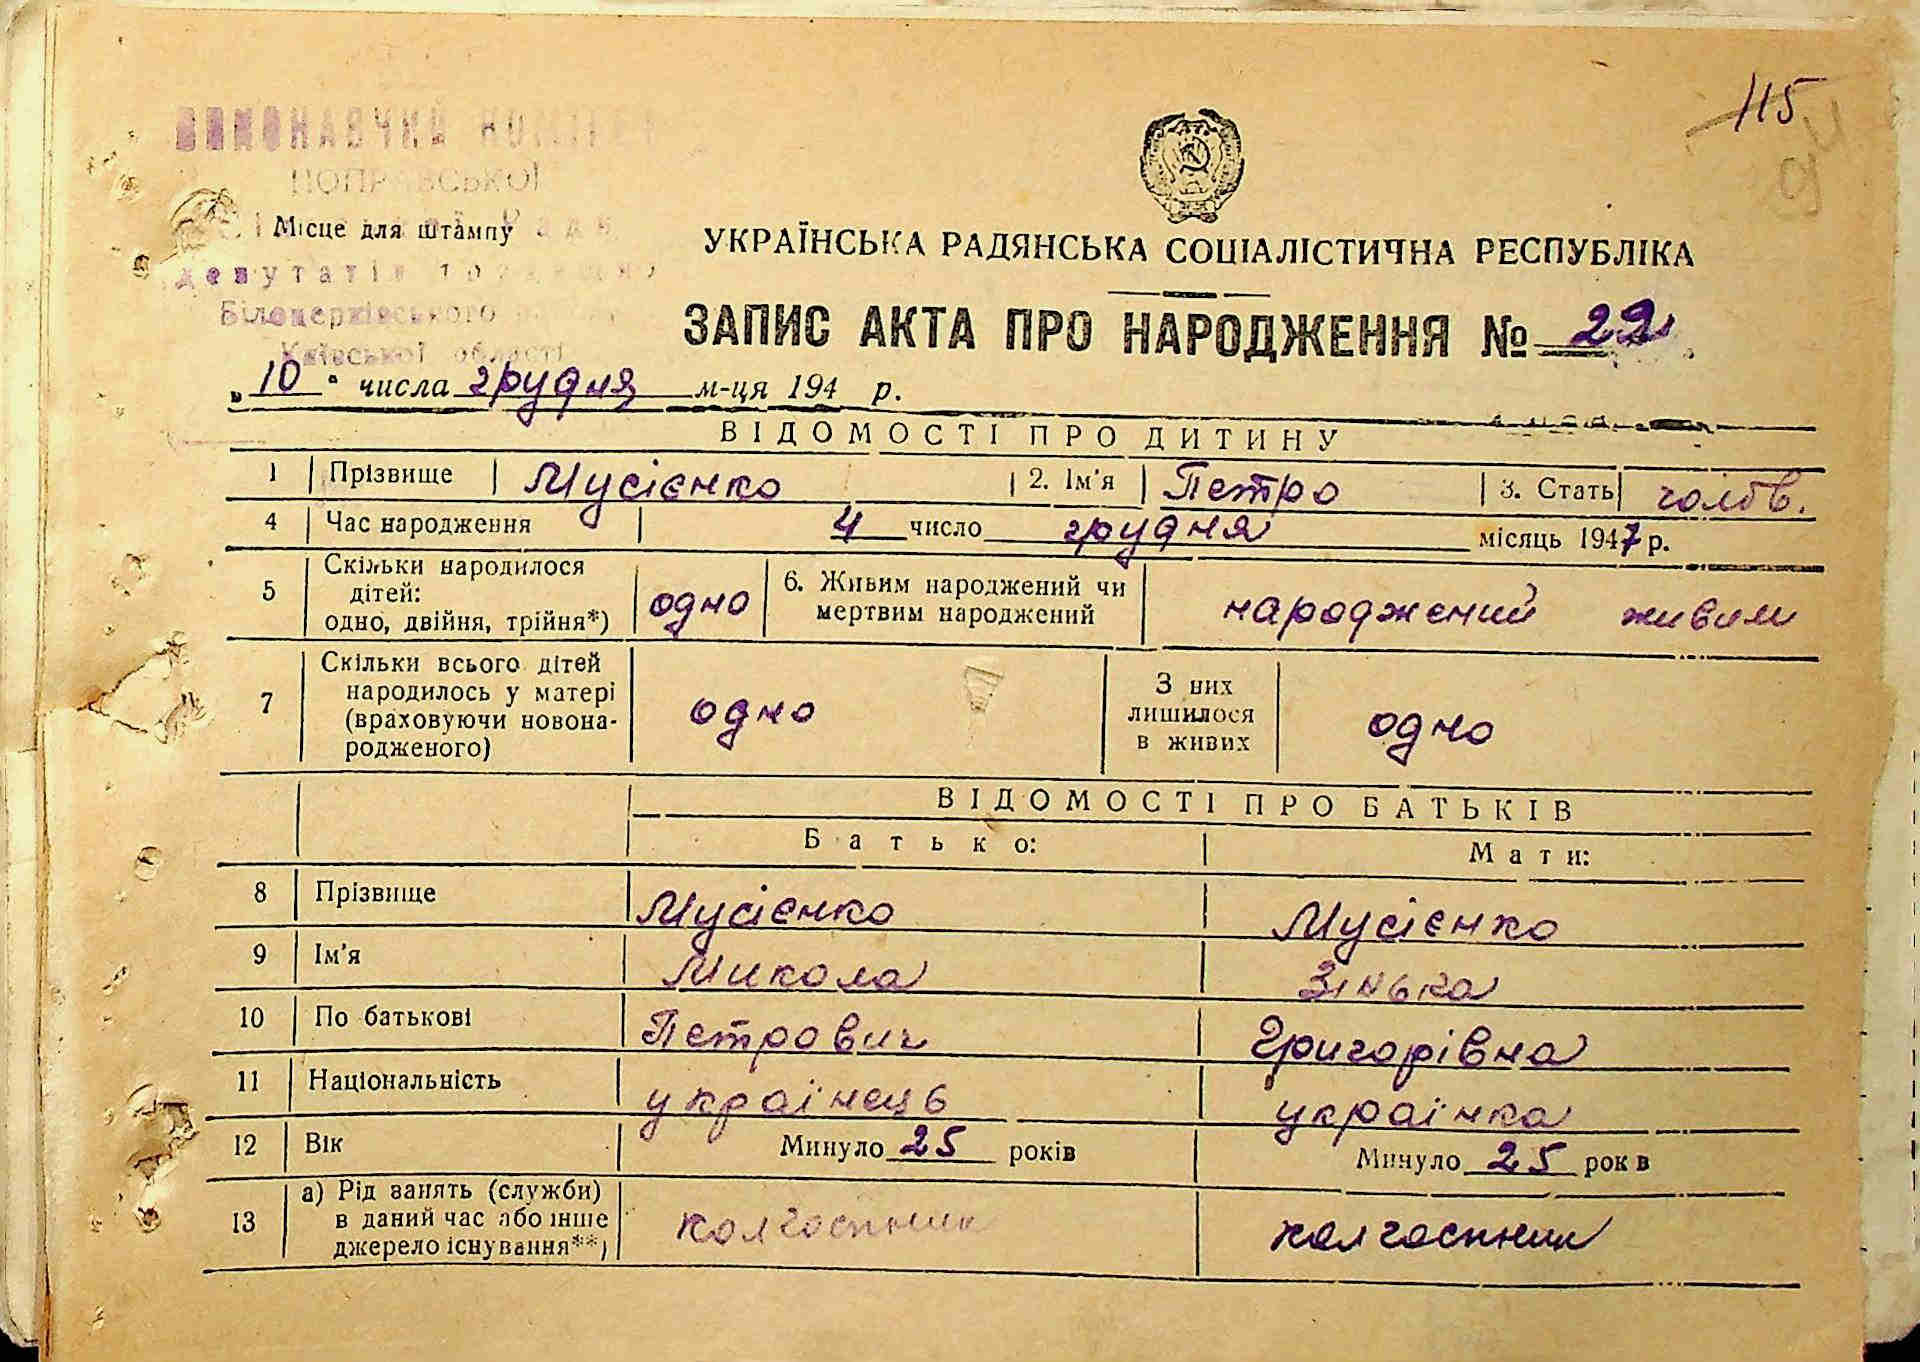 115
ВИКОНАВЧИЙ КОМІТЕТ
Місце для штампу
депутатів
Білоцерківського
Київської області
УКРАЇНСЬКА РАДЯНСЬКА СОЦІАЛІСТИЧНА РЕСПУБЛІКА
ЗАПИС АКТА ПРО НАРОДЖЕННЯ № 22
„ 10 " числа грудня м-ця 194 р.
ВІДОМОСТІ ПРО ДИТИНУ
1 Прізвище Мусієнко 2. Ім'я Петро 3. Стать чолов.
4 Час народження 4 число грудня місяць 1947 р.
5 Скільки народилося дітей: одно, двійня, трійня*) одно 6. Живим народжений чи мертвим народжений народжений живим
7 Скільки всього дітей народилось у матері (враховуючи новонародженого) одно З них лишилося в живих одно
ВІДОМОСТІ ПРО БАТЬКІВ
Батько: Мати:
8 Прізвище Мусієнко Мусієнко
9 Ім'я Микола Зінька
10 По батькові Петрович Григорівна
11 Національність українець українка
12 Вік Минуло 25 років Минуло 25 рок в
13 а) Рід занять (служби) в даний час або інше джерело існування**) колгоспник колгоспник